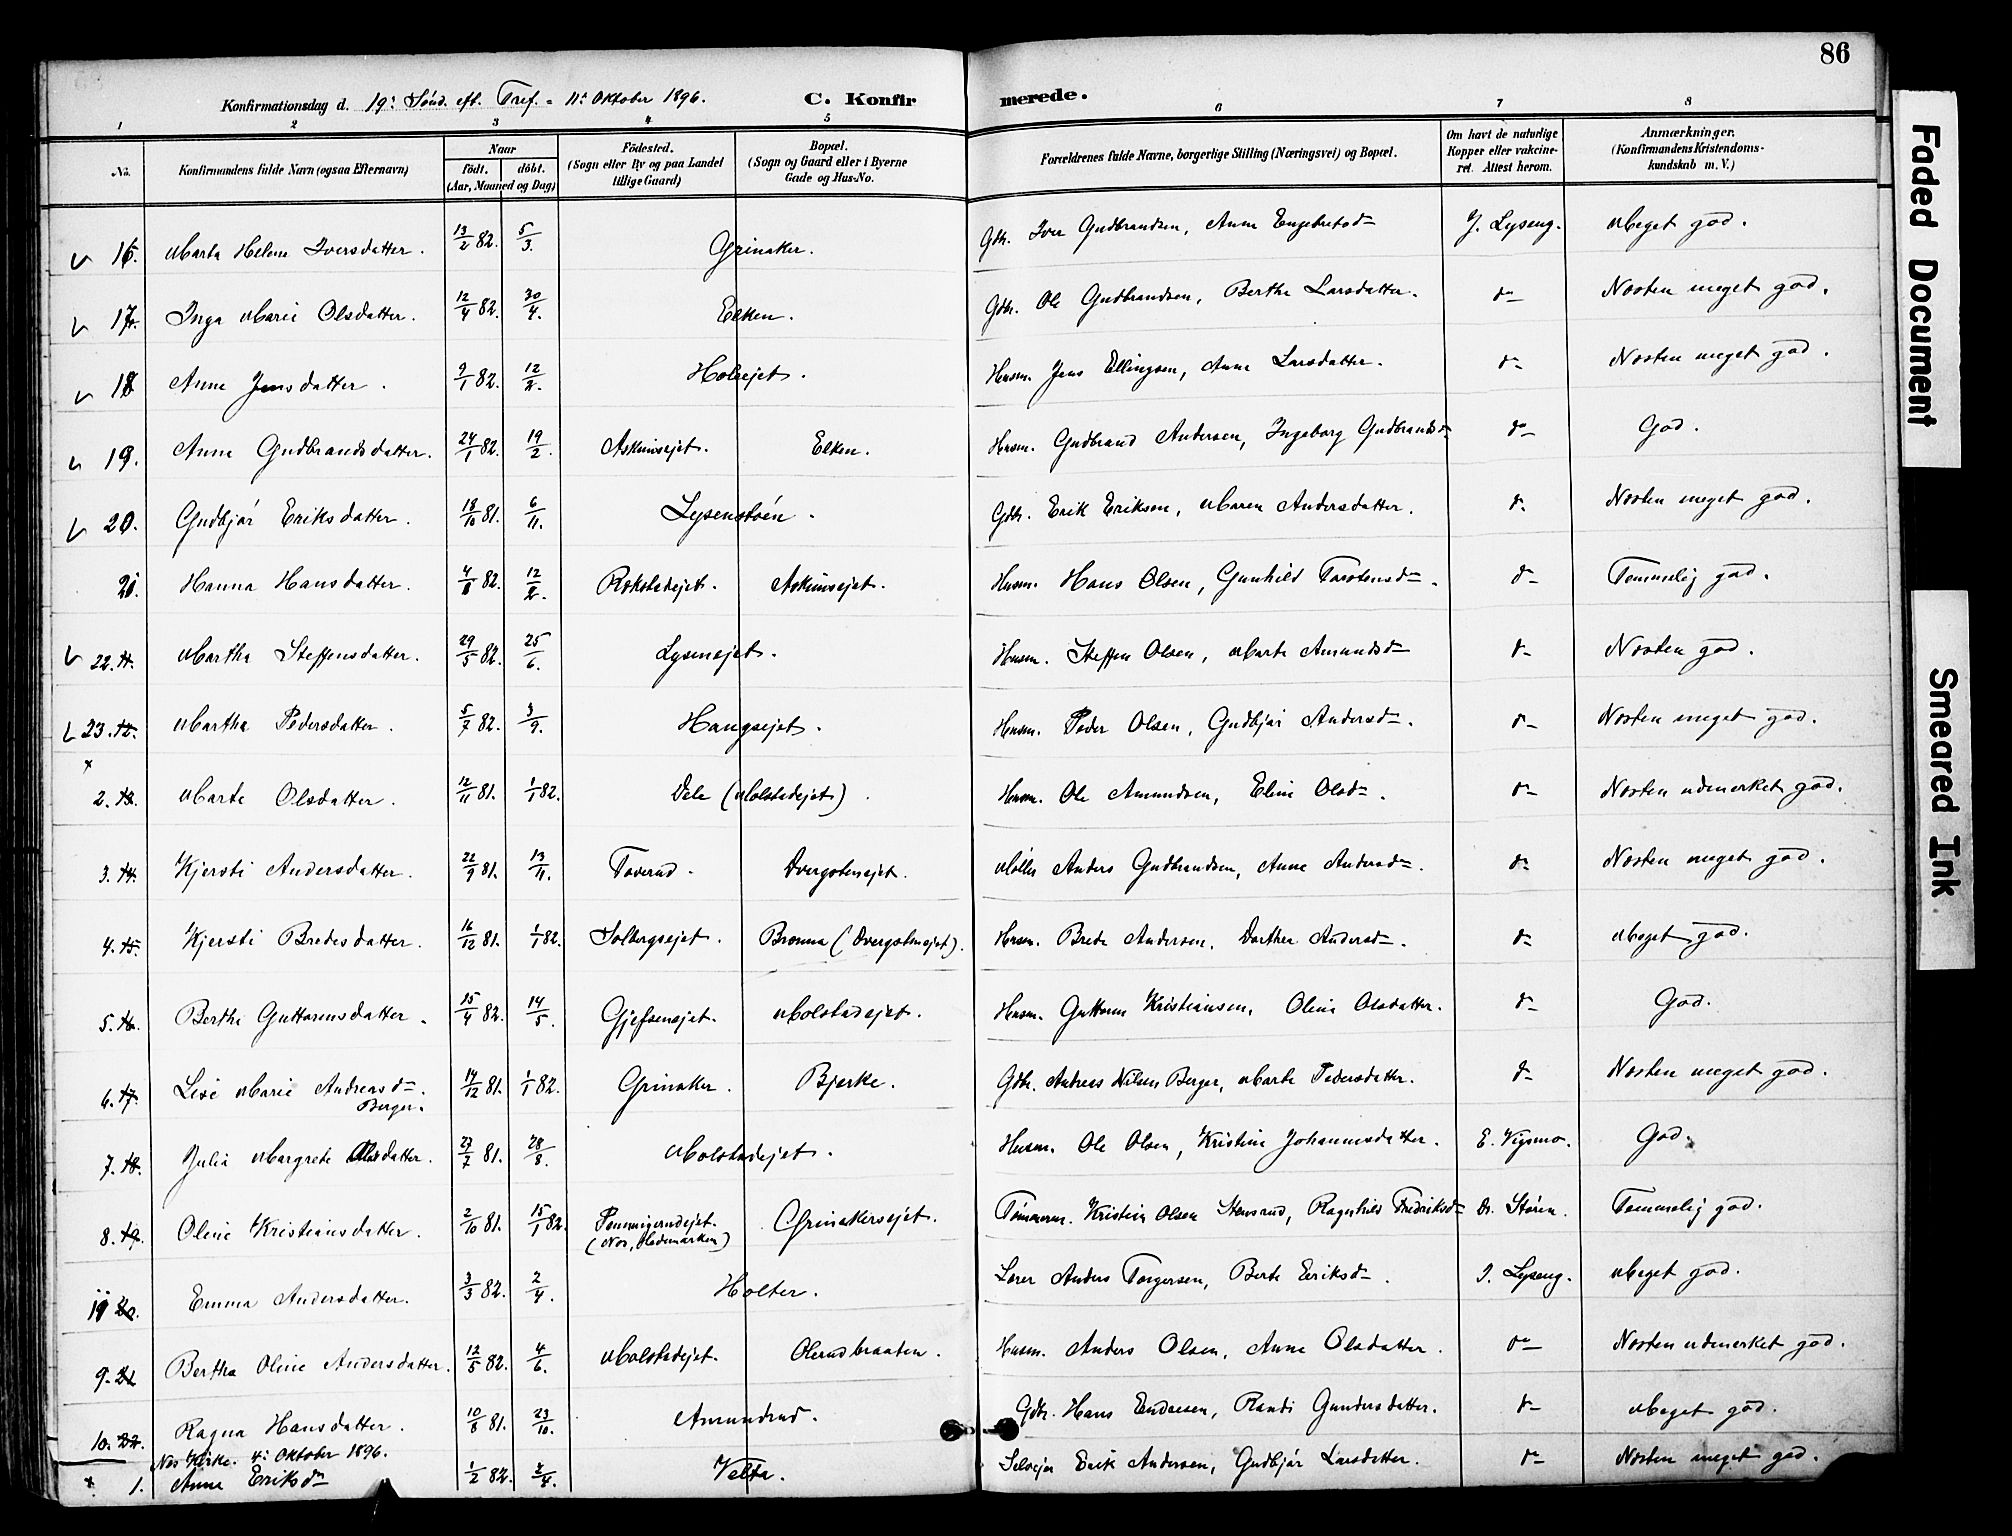 86
Konfirmationsdag d. 19: Sönd. eft. Tref. = 11: Oktober 1896. C. Konfir merede.
1 2 3 4 5 6 7 8
No. Konfirmandens fulde Navn (ogsaa Efternavn) Naar födt. döbt. (Aar, Maaned og Dag) Födested. (Sogn eller By og paa Landet tillige Gaard) Bopæl. (Sogn og Gaard eller i Byerne Gade og Hus-No. Forældrenes fulde Navne, borgerlige Stilling (Næringsvei) og Bopæl. Om havt de naturlige Kopper eller vakcineret. Attest herom. Anmærkninger. (Konfirmandens Kristendomskundskab m. V.)
16. Marta Helene Iversdatter. 13/2 82. 5/3. Grinaker. Gdb. Iver Gudbrandsen, Anne Engebretsd J. Lyseng. Meget god.
17. Inga Marie Olsdatter. 12/4 82. 30/4. Elken. Gdb. Ole Gudbrandsen, Berthe Larsdatter. do Næsten meget god.
18 Anne Jensdatter. 9/1 82. 12/2. Holsejet. Husm. Jens Ellingsen, Anne Larsdatter. do Næsten meget god.
19. Anne Gudbrandsdatter. 24/1 82. 19/2. Askimsejet. Elken. Husm. Gudbrand Andersen, Ingeborg Gudbrandsd do God.
20. Gudbjör Eriksdatter. 18/10 81. 6/11. Lysenstöen. Gdb. Erik Eriksen, Maren Andersdatter. do Næsten meget god.
21. Hanna Hansdatter. 82. 12/2. Rokstadejet. Askimsejet. Husm. Hans Olsen, Gunhild Torstensd. do Temmelig god.
22. Martha Steffensdatter. 29/5 82. 25/6. Lysenejet. Husm. Steffen Olsen, Marte Amundsd do Næsten god.
23. Martha Pedersdatter. 5/7 82. 3/9. Haugsejet. Husm. Peder Olsen, Gudbjör Andersd. do Næsten meget god.
2. Marte Olsdatter. 12/11 81. 1/1 82. Dele (Molstadejet). Husm. Ole Amundsen, Eline Olsd. do Næsten udmerket god.
3. Kjersti Andersdatter. 22/9 81. 13/11. Toverud. Dvergstenejet. Möller Anders Gudbrandsen, Anne Andersd. do Næsten meget god.
4. Kjersti Bredesdatter. 16/12 81. 1/1 82. Solbergsejet. Brenna (Dvergstenejet). Husm. Brede Andersen, Dorthea Andersd. do Meget god.
5. Berthe Guttormsdatter. 15/4 82. 14/5. Gjefsenejet. Molstadejet. Husm. Guttorm Kristiansen, Oline Olsdatter. do God.
6. Lise Marie Andreasd. Berger. 14/12 81. 1/1 82. Grinaker. Bjerke. Gdb. Andreas Nilsen Berger, Marte Pedersdatter. do Næsten meget god.
7. Julia Margrete Olsdatter. 27/7 81. 28/8. Molstadejet. Husm. Ole Olsen, Kristine Johannesdatter. E. Vigsmo. God.
8. Oline Kristiansdatter. 2/10 81. 15/1 82. (Nes, Hedemarken) Grinakersejet. Tömmerm. Kristian Olsen Ragnhild Fredriksd Dr. Stören. Temmelig god.
Emma Andersdatter. 3/3 82. 2/4. Holter. Lærer Anders Torgersen, Berte Eriksd. J. Lyseng. Meget god.
9. Bertha Oline Andersdatter. 12/5 82. 4/6. Molstadejet. Olerudbraaten. Husm. Anders Olsen, Anne Olsdatter. do Næsten udmerket god.
10. Ragna Hansdatter. 10/8 81. 23/10. Amundrud. Gdb. Hans Endresen, Randi Gundersdatter. do Meget god.
Nes Kirke. 4: Oktober 1896.
1. Anne Eriksd 1/2 82. Velta. Selveier Erik Andersen, Gudbjör Larsdatter. do Næsten meget god.
Faded Document
Smeared Ink